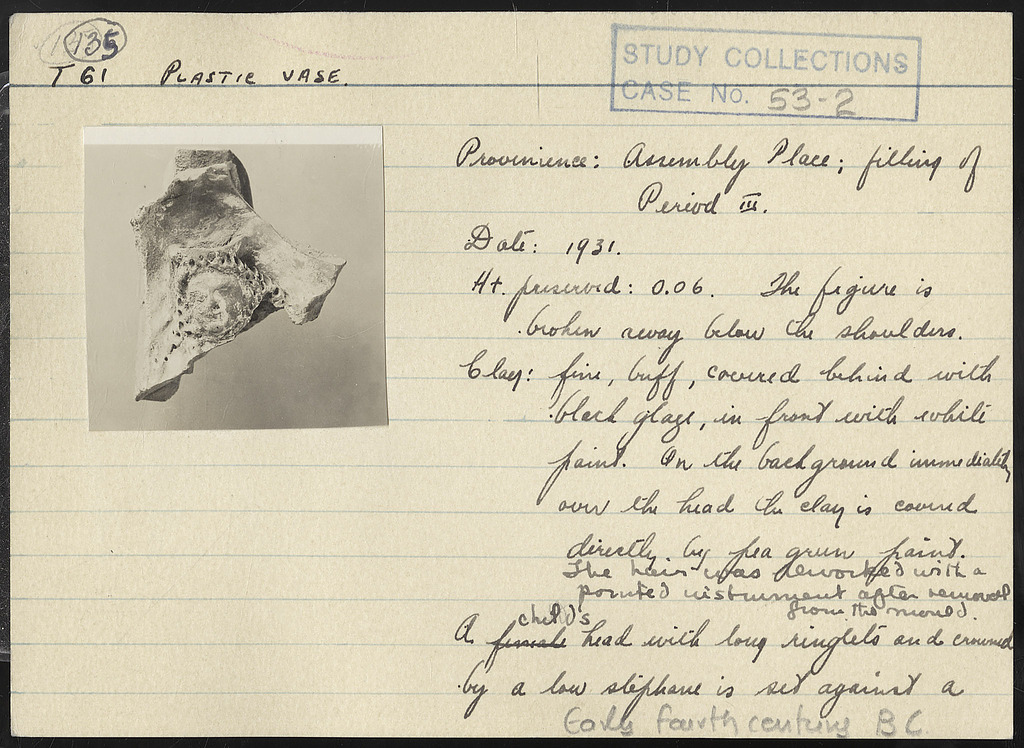 135
T 61 PLASTIC VASE.
STUDY COLLECTIONS
CASE No. 53-2
Provinience: Assembly Place; filling of
Period III.
Date: 1931.
Ht. preserved: 0.06. The figure is
broken away below the shoulders.
Clay: fine, buff, covered behind with
black glaze, in front with white
paint. On the background immediately
over the head the clay is covered
directly by pea green paint.
The hair was reworked with a
pointed instrument after removal
from the mould.
child's
A female head with long ringlets and crowned
by a low stephane is set against a
Early fourth century B.C.